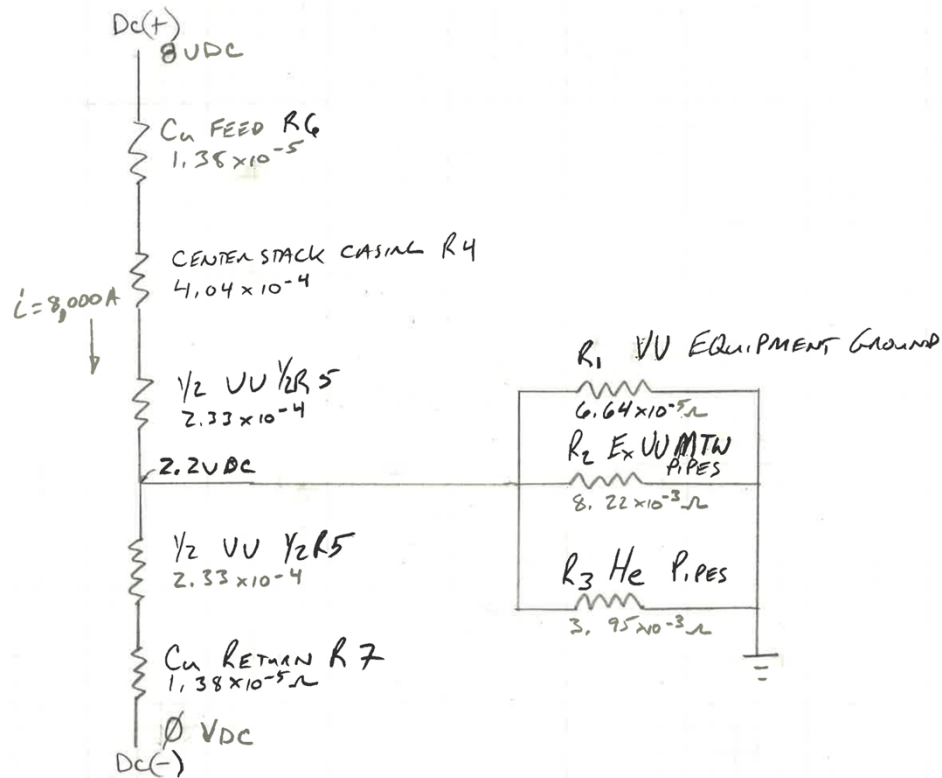 Dc(+)
8 VDC
Cu FEED R6
1.38×10⁻⁵
CENTER STACK CASING R4
4.04×10⁻⁴
i=8,000A
1/2 VV 1/2R5
2.33×10⁻⁴
2.2VDC
1/2 VV 1/2R5
2.33×10⁻⁴
Cu RETURN R7
1.38×10⁻⁵Ω
Ø VDC
Dc(-)
R1 VV EQUIPMENT GROUND
6.64×10⁻⁵Ω
R2 Ex VV MTW
PIPES
8.22×10⁻³Ω
R3 He PIPES
3.95×10⁻³Ω